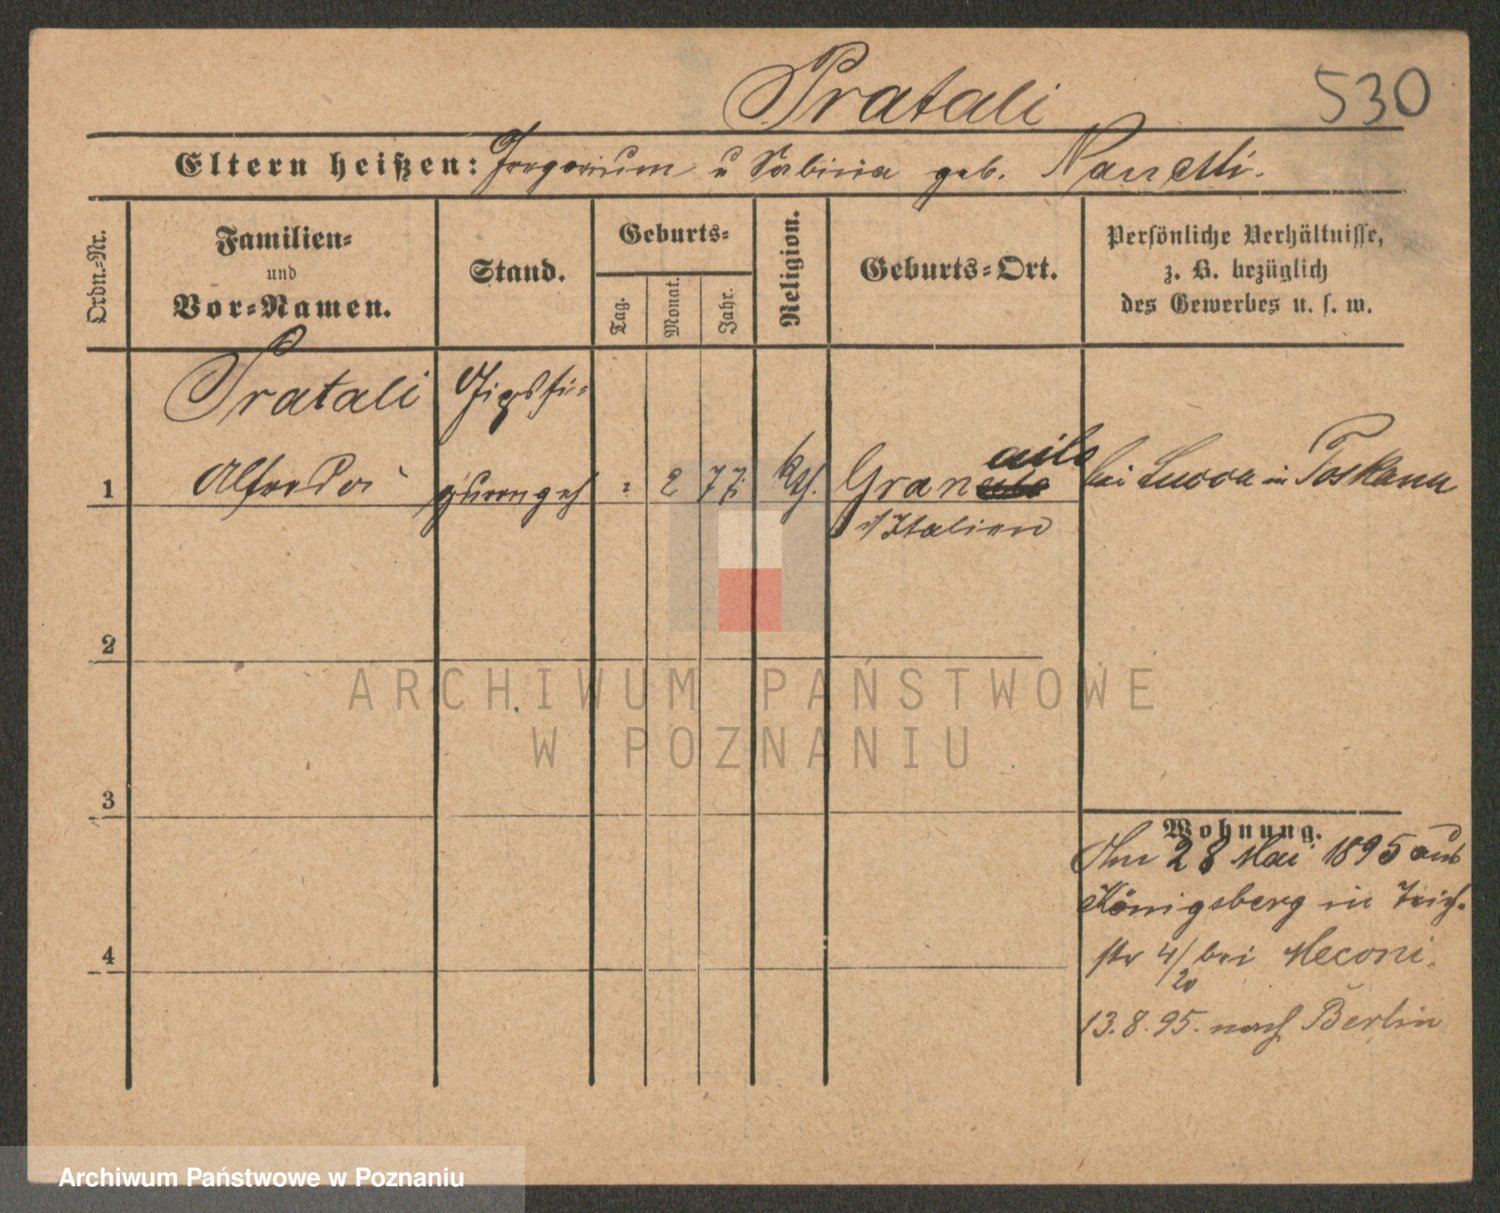 Pratali
530
Eltern heißen: Gregorium u Sabina geb. Nanetti.
Ordn.-Nr.
Familien-
und
Vor-Namen.
Stand.
Geburts-
Tag.
Monat.
Jahr.
Religion.
Geburts-Ort.
Persönliche Verhältnisse,
z. B. bezüglich
des Gewerbes u. s. w.
Pratali
Gipsfi-
ailo
1 Alfredo gurengeh : 2 77. kth. Gran bei Lucca in Toskana
i/ Italien
2
3
4
Wohnung.
Am 28 Mai 1895 aus
Königsberg in Teich-
str 4/20 bei Meconi.
13.8.95. nach Berlin
ARCHIWUM PAŃSTWOWE
W POZNANIU
Archiwum Państwowe w Poznaniu